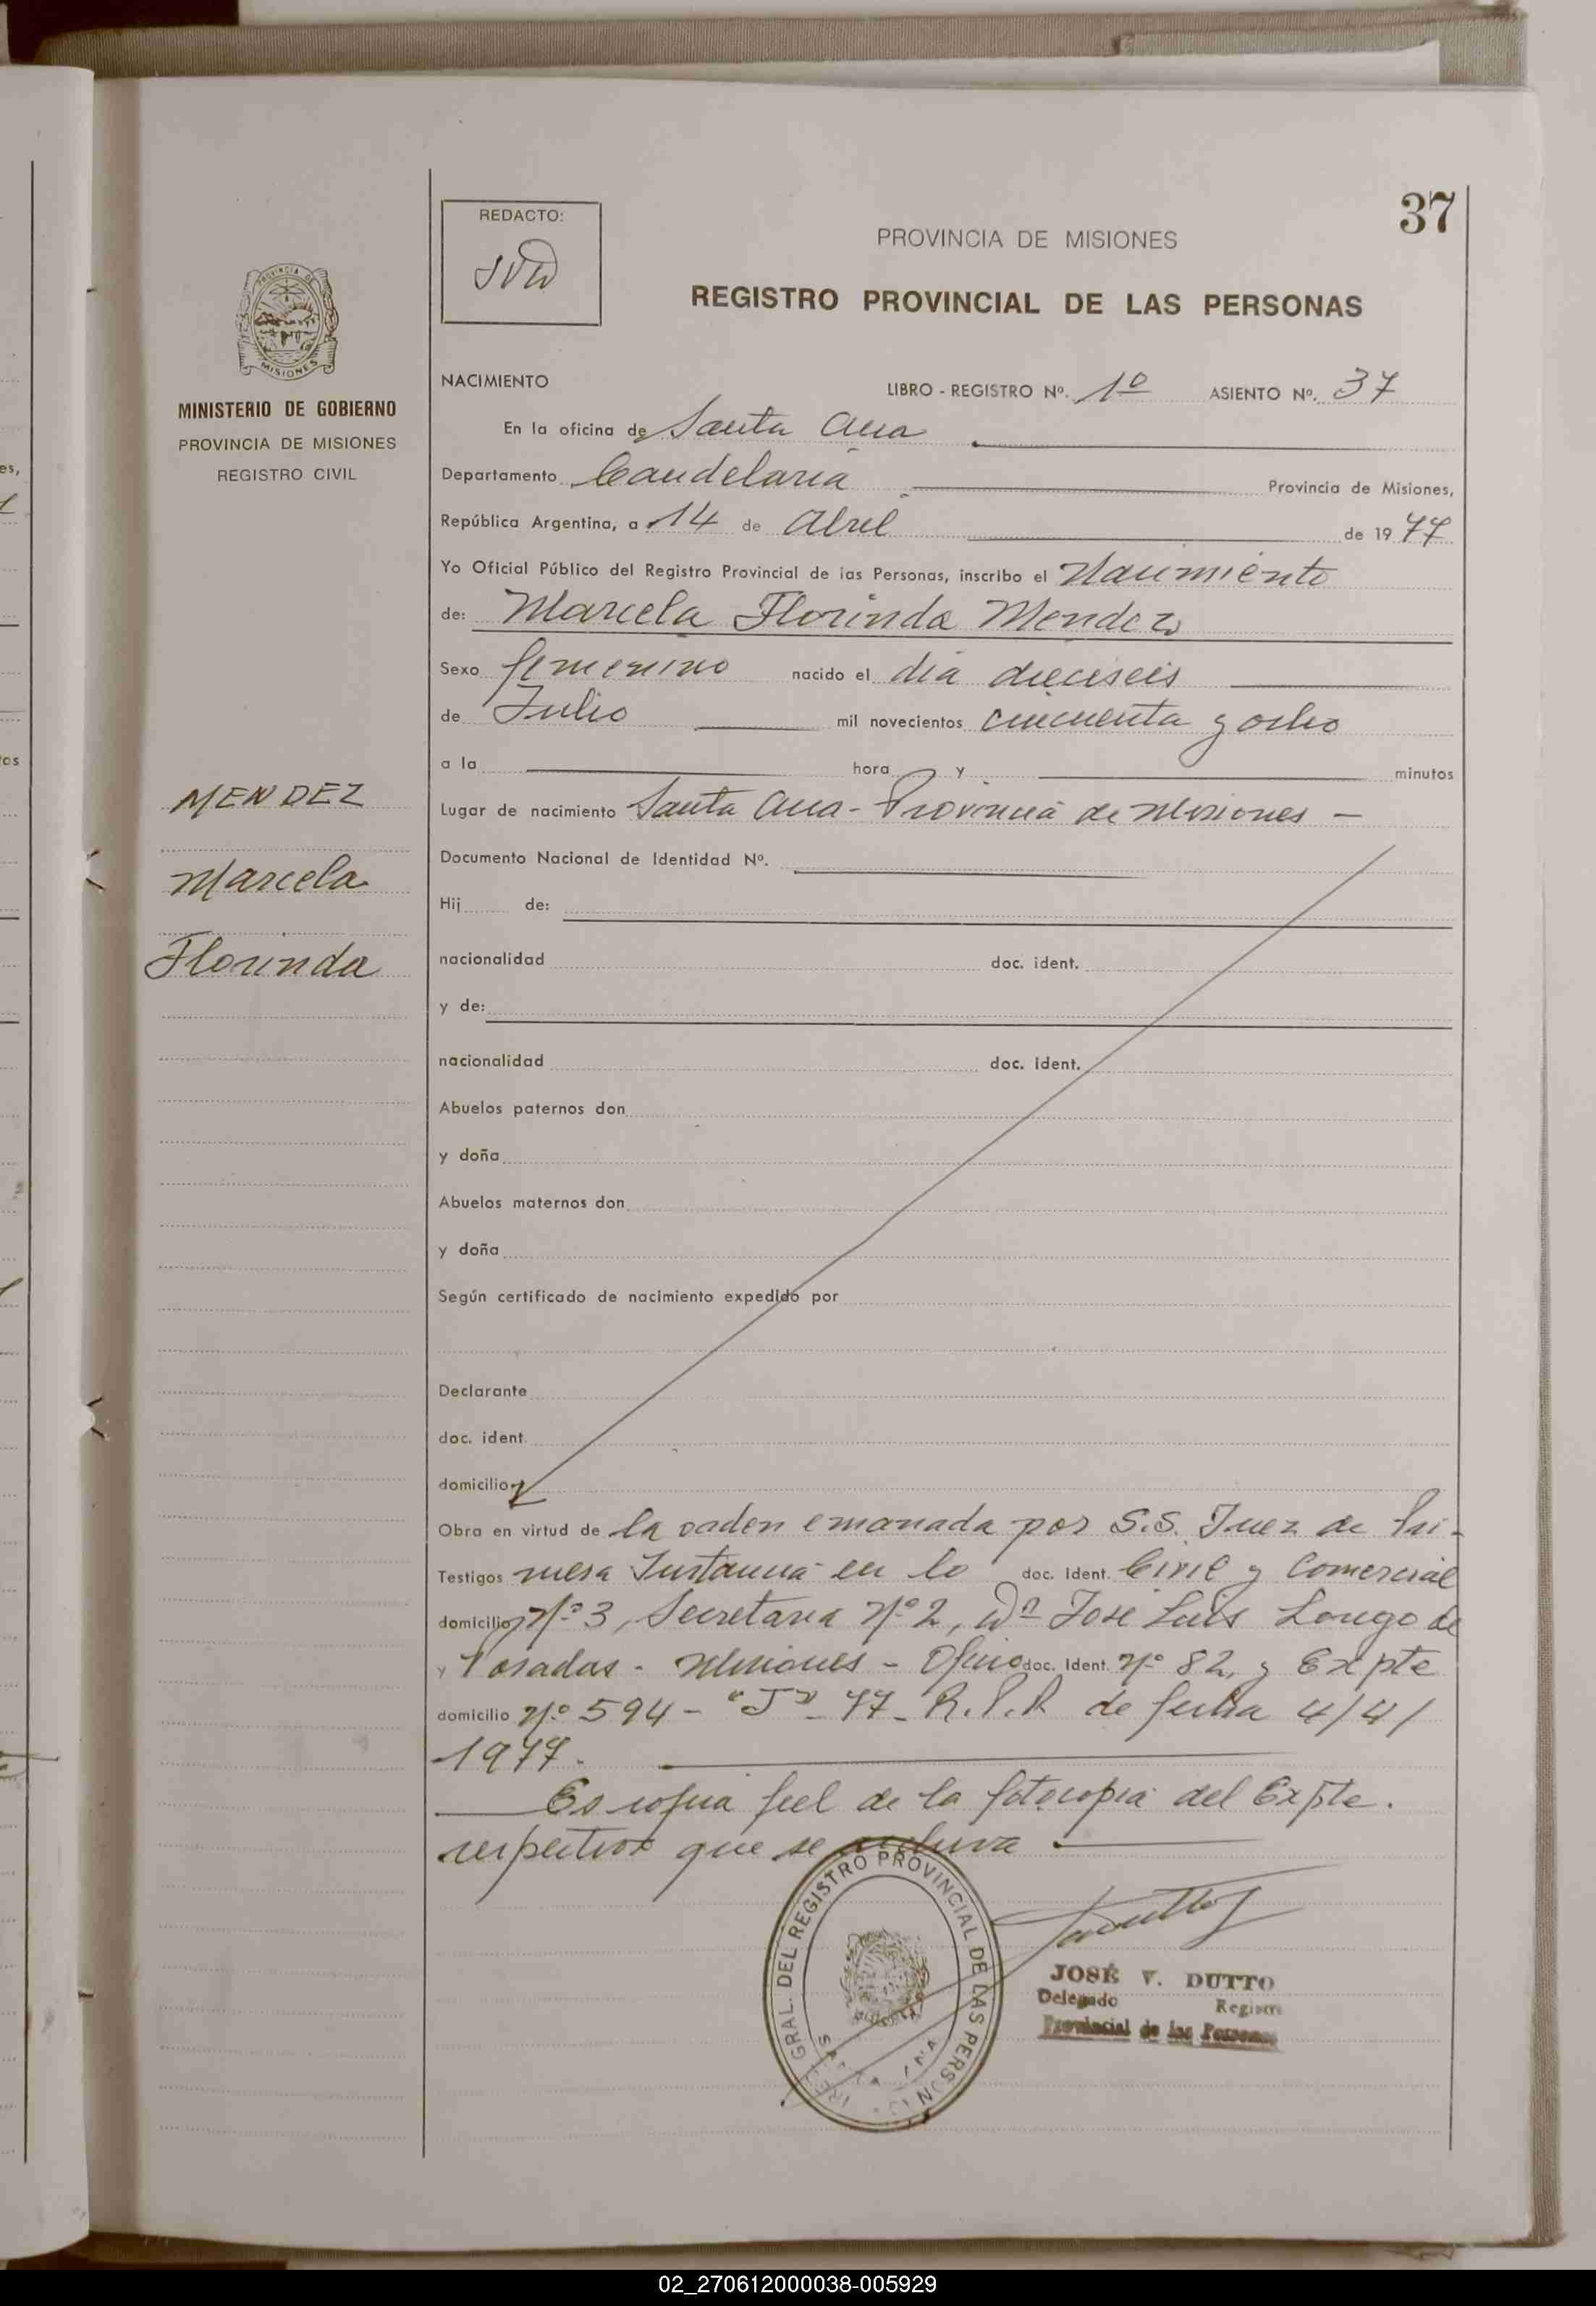 37
REDACTO:
PROVINCIA DE MISIONES
REGISTRO PROVINCIAL DE LAS PERSONAS
PROVINCIA DE
MISIONES
MINISTERIO DE GOBIERNO
PROVINCIA DE MISIONES
REGISTRO CIVIL
NACIMIENTO LIBRO - REGISTRO Nº. 1º ASIENTO Nº. 37
En la oficina de Santa Ana
Departamento Candelaria Provincia de Misiones,
República Argentina, a 14 de Abril de 1977
Yo Oficial Público del Registro Provincial de las Personas, inscribo el Nacimiento
de: Marcela Florinda Mendez
Sexo femenino nacido el dia dieciseis
de Julio mil novecientos cincuenta y ocho
a la hora y minutos
MENDEZ
Marcela
Florinda
Lugar de nacimiento Santa Ana - Provincia de Misiones -
Documento Nacional de Identidad Nº.
Hij de:
nacionalidad doc. ident.
y de:
nacionalidad doc. ident.
Abuelos paternos don
y doña
Abuelos maternos don
y doña
Según certificado de nacimiento expedido por
Declarante
doc. ident.
domicilio
Obra en virtud de la orden emanada por S.S. Juez de Pri-
Testigos mera Instancia en lo doc. Ident. Civil y Comercial
domicilio Nº 3, Secretaria Nº 2, Dn José Luis Longo de
y Posadas - Misiones - Oficio doc. Ident. Nº 82, y Expte
domicilio Nº 594 - "J" - 77 - R.P.P. de fecha 4/4/
1977.
Es copia fiel de la fotocopia del Expte.
respectivo que se archiva.
GRAL. DEL REGISTRO PROVINCIAL DE LAS PERSONAS
SANTA ANA
JOSÉ V. DUTTO
Delegado Registro
Provincial de las Personas
02_270612000038-005929